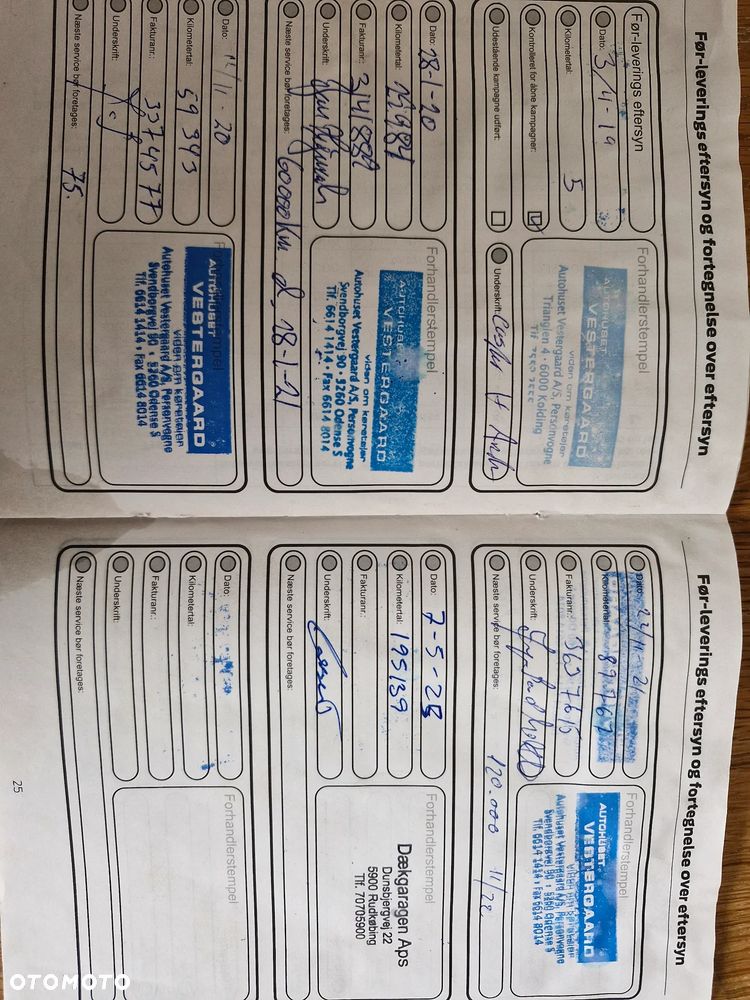 Før-leverings eftersyn og fortegnelse over eftersyn
Før-leverings eftersyn
Dato: 3/4-19
Kilometertal: 5
Kontrolleret for åbne kampagner:
Udestående kampagne udført:
Forhandlerstempel
AUTOHUSET
VESTERGAARD
viden om køretøjer
Autohuset Vestergaard A/S, Personvogne
Trianglen 4 · 6000 Kolding
Underskrift:
Dato: 28-1-20
Kilometertal: 29984
Fakturanr.: 3141882
Underskrift:
Næste service bør foretages: 60000 Km d, 28-1-21
Forhandlerstempel
AUTOHUSET
VESTERGAARD
viden om køretøjer
Autohuset Vestergaard A/S, Personvogne
Svendborgvej 90 · 5260 Odense S
Tlf. 6614 1414 · Fax 6614 8014
Dato: 12/11-20
Kilometertal: 59393
Fakturanr.: 3374577
Underskrift:
Næste service bør foretages: 75.
AUTOHUSET
VESTERGAARD
viden om køretøjer
Autohuset Vestergaard A/S, Personvogne
Svendborgvej 90 · 5260 Odense S
Tlf. 6614 1414 · Fax 6614 8014
Før-leverings eftersyn og fortegnelse over eftersyn
Dato: 22/11-21
Kilometertal: 89762
Fakturanr.: 3637615
Underskrift:
Næste service bør foretages: 120.000 11/22
Forhandlerstempel
AUTOHUSET
VESTERGAARD
viden om køretøjer
Autohuset Vestergaard A/S, Personvogne
Svendborgvej 90 · 5260 Odense S
Tlf. 6614 1414 · Fax 6614 8014
Dato: 7-5-25
Kilometertal: 195139
Fakturanr.:
Underskrift:
Næste service bør foretages:
Forhandlerstempel
Dækgaragen Aps
Dunsbjergvej 22
5900 Rudkøbing
Tlf. 70705900
Dato:
Kilometertal:
Fakturanr.:
Underskrift:
Næste service bør foretages:
Forhandlerstempel
25
OTOMOTO